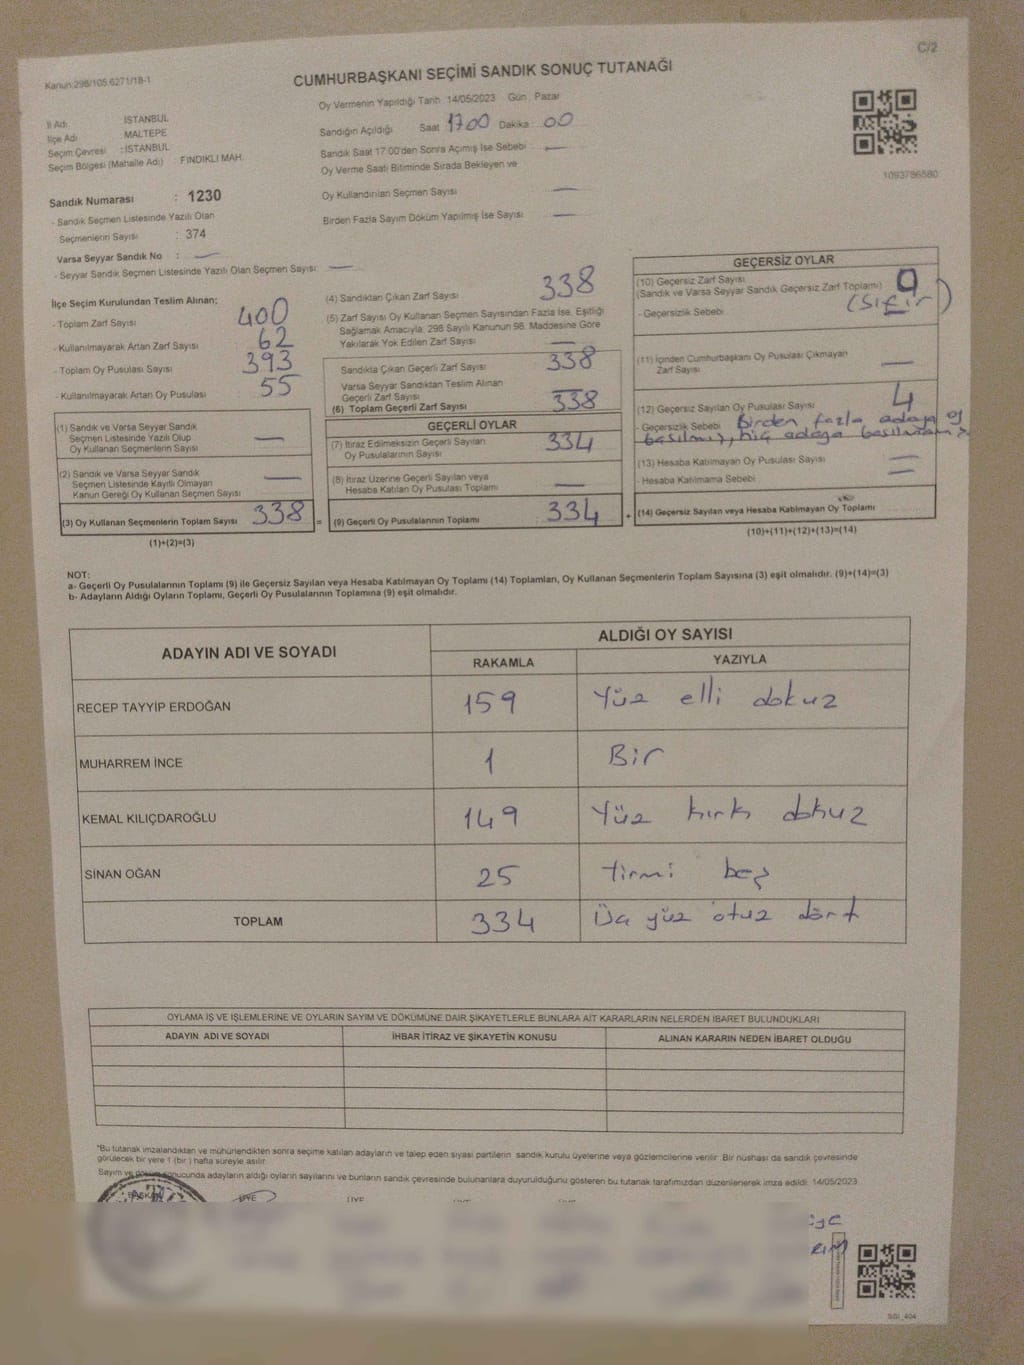 C/2
Kanun:298/105.6271/18-1
CUMHURBAŞKANI SEÇİMİ SANDIK SONUÇ TUTANAĞI
Oy Vermenin Yapıldığı Tarih 14/05/2023 Gün Pazar
İl Adı : İSTANBUL
İlçe Adı MALTEPE
Seçim Çevresi : İSTANBUL
Seçim Bölgesi (Mahalle Adı) FINDIKLI MAH.
Sandığın Açıldığı Saat 17:00 Dakika : 00
Sandık Saat 17:00'den Sonra Açımış İse Sebebi —
Oy Verme Saati Bitiminde Sırada Bekleyen ve
Oy Kullandırılan Seçmen Sayısı —
Birden Fazla Sayım Döküm Yapılmış İse Sayısı —
1093786580
Sandık Numarası : 1230
- Sandık Seçmen Listesinde Yazılı Olan
Seçmenlerin Sayısı : 374
Varsa Seyyar Sandık No : —
- Seyyar Sandık Seçmen Listesinde Yazılı Olan Seçmen Sayısı: —
İlçe Seçim Kurulundan Teslim Alınan:
- Toplam Zarf Sayısı 400
- Kullanılmayarak Artan Zarf Sayısı 62
- Toplam Oy Pusulası Sayısı 393
- Kullanılmayarak Artan Oy Pusulası 55
(1) Sandık ve Varsa Seyyar Sandık
Seçmen Listesinde Yazılı Olup
Oy Kullanan Seçmenlerin Sayısı —
(2) Sandık ve Varsa Seyyar Sandık
Seçmen Listesinde Kayıtlı Olmayan
Kanun Gereği Oy Kullanan Seçmen Sayısı —
(3) Oy Kullanan Seçmenlerin Toplam Sayısı 338 =
(1)+(2)=(3)
(4) Sandıktan Çıkan Zarf Sayısı 338
(5) Zarf Sayısı Oy Kullanan Seçmen Sayısından Fazla İse, Eşitliği
Sağlamak Amacıyla, 298 Sayılı Kanunun 98. Maddesine Göre
Yakılarak Yok Edilen Zarf Sayısı —
Sandıkta Çıkan Geçerli Zarf Sayısı 338
Varsa Seyyar Sandıktan Teslim Alınan
Geçerli Zarf Sayısı —
(6) Toplam Geçerli Zarf Sayısı 338
GEÇERLİ OYLAR
(7) İtiraz Edilmeksizin Geçerli Sayılan
Oy Pusulalarının Sayısı 334
(8) İtiraz Üzerine Geçerli Sayılan veya
Hesaba Katılan Oy Pusulası Toplamı —
(9) Geçerli Oy Pusulalarının Toplamı 334 +
GEÇERSİZ OYLAR
(10) Geçersiz Zarf Sayısı
(Sandık ve Varsa Seyyar Sandık Geçersiz Zarf Toplamı) 0
(Sıfır)
- Geçersizlik Sebebi
(11) İçinden Cumhurbaşkanı Oy Pusulası Çıkmayan
Zarf Sayısı —
(12) Geçersiz Sayılan Oy Pusulası Sayısı 4
- Geçersizlik Sebebi Birden fazla adaya oy
basılmış, hiç adaya
(13) Hesaba Katılmayan Oy Pusulası Sayısı —
- Hesaba Katılmama Sebebi —
(14) Geçersiz Sayılan veya Hesaba Katılmayan Oy Toplamı
(10)+(11)+(12)+(13)=(14)
NOT:
a- Geçerli Oy Pusulalarının Toplamı (9) ile Geçersiz Sayılan veya Hesaba Katılmayan Oy Toplamı (14) Toplamları, Oy Kullanan Seçmenlerin Toplam Sayısına (3) eşit olmalıdır. (9)+(14)=(3)
b- Adayların Aldığı Oyların Toplamı, Geçerli Oy Pusulalarının Toplamına (9) eşit olmalıdır.
ADAYIN ADI VE SOYADI ALDIĞI OY SAYISI
RAKAMLA YAZIYLA
RECEP TAYYİP ERDOĞAN 159 Yüz elli dokuz
MUHARREM İNCE 1 Bir
KEMAL KILIÇDAROĞLU 149 Yüz kırk dokuz
SİNAN OĞAN 25 Yirmi beş
TOPLAM 334 Üç yüz otuz dört
OYLAMA İŞ VE İŞLEMLERİNE VE OYLARIN SAYIM VE DÖKÜMÜNE DAİR ŞİKAYETLERLE BUNLARA AİT KARARLARIN NELERDEN İBARET BULUNDUKLARI
ADAYIN ADI VE SOYADI İHBAR İTİRAZ VE ŞİKAYETİN KONUSU ALINAN KARARIN NEDEN İBARET OLDUĞU
*Bu tutanak imzalandıktan ve mühürlendikten sonra seçime katılan adayların ve talep eden siyasi partilerin sandık kurulu üyelerine veya gözlemcilerine verilir. Bir nüshası da sandık çevresinde
görülecek bir yere 1 (bir) hafta süreyle asılır.
Sayım ve döküm sonucunda adayların aldığı oyların sayılarını ve bunların sandık çevresinde bulunanlara duyurulduğunu gösteren bu tutanak tarafımızdan düzenlenerek imza edildi. 14/05/2023
BAŞKAN ÜYE ÜYE